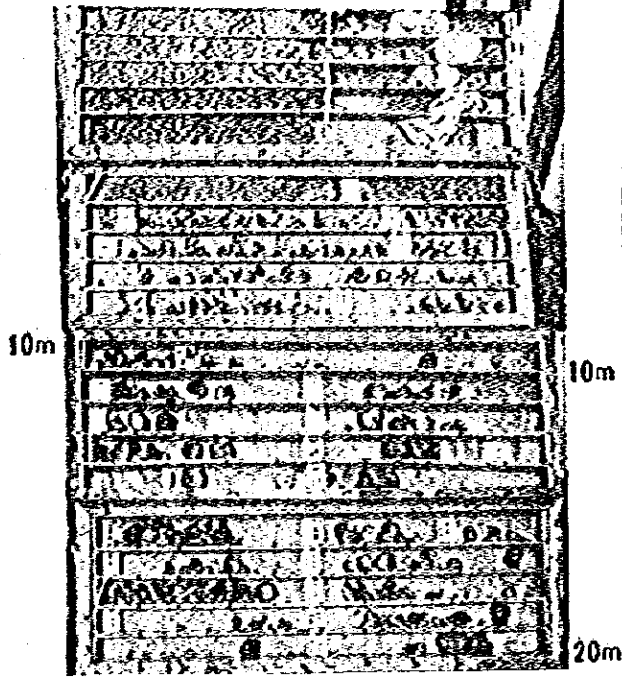 10m
10m
20m